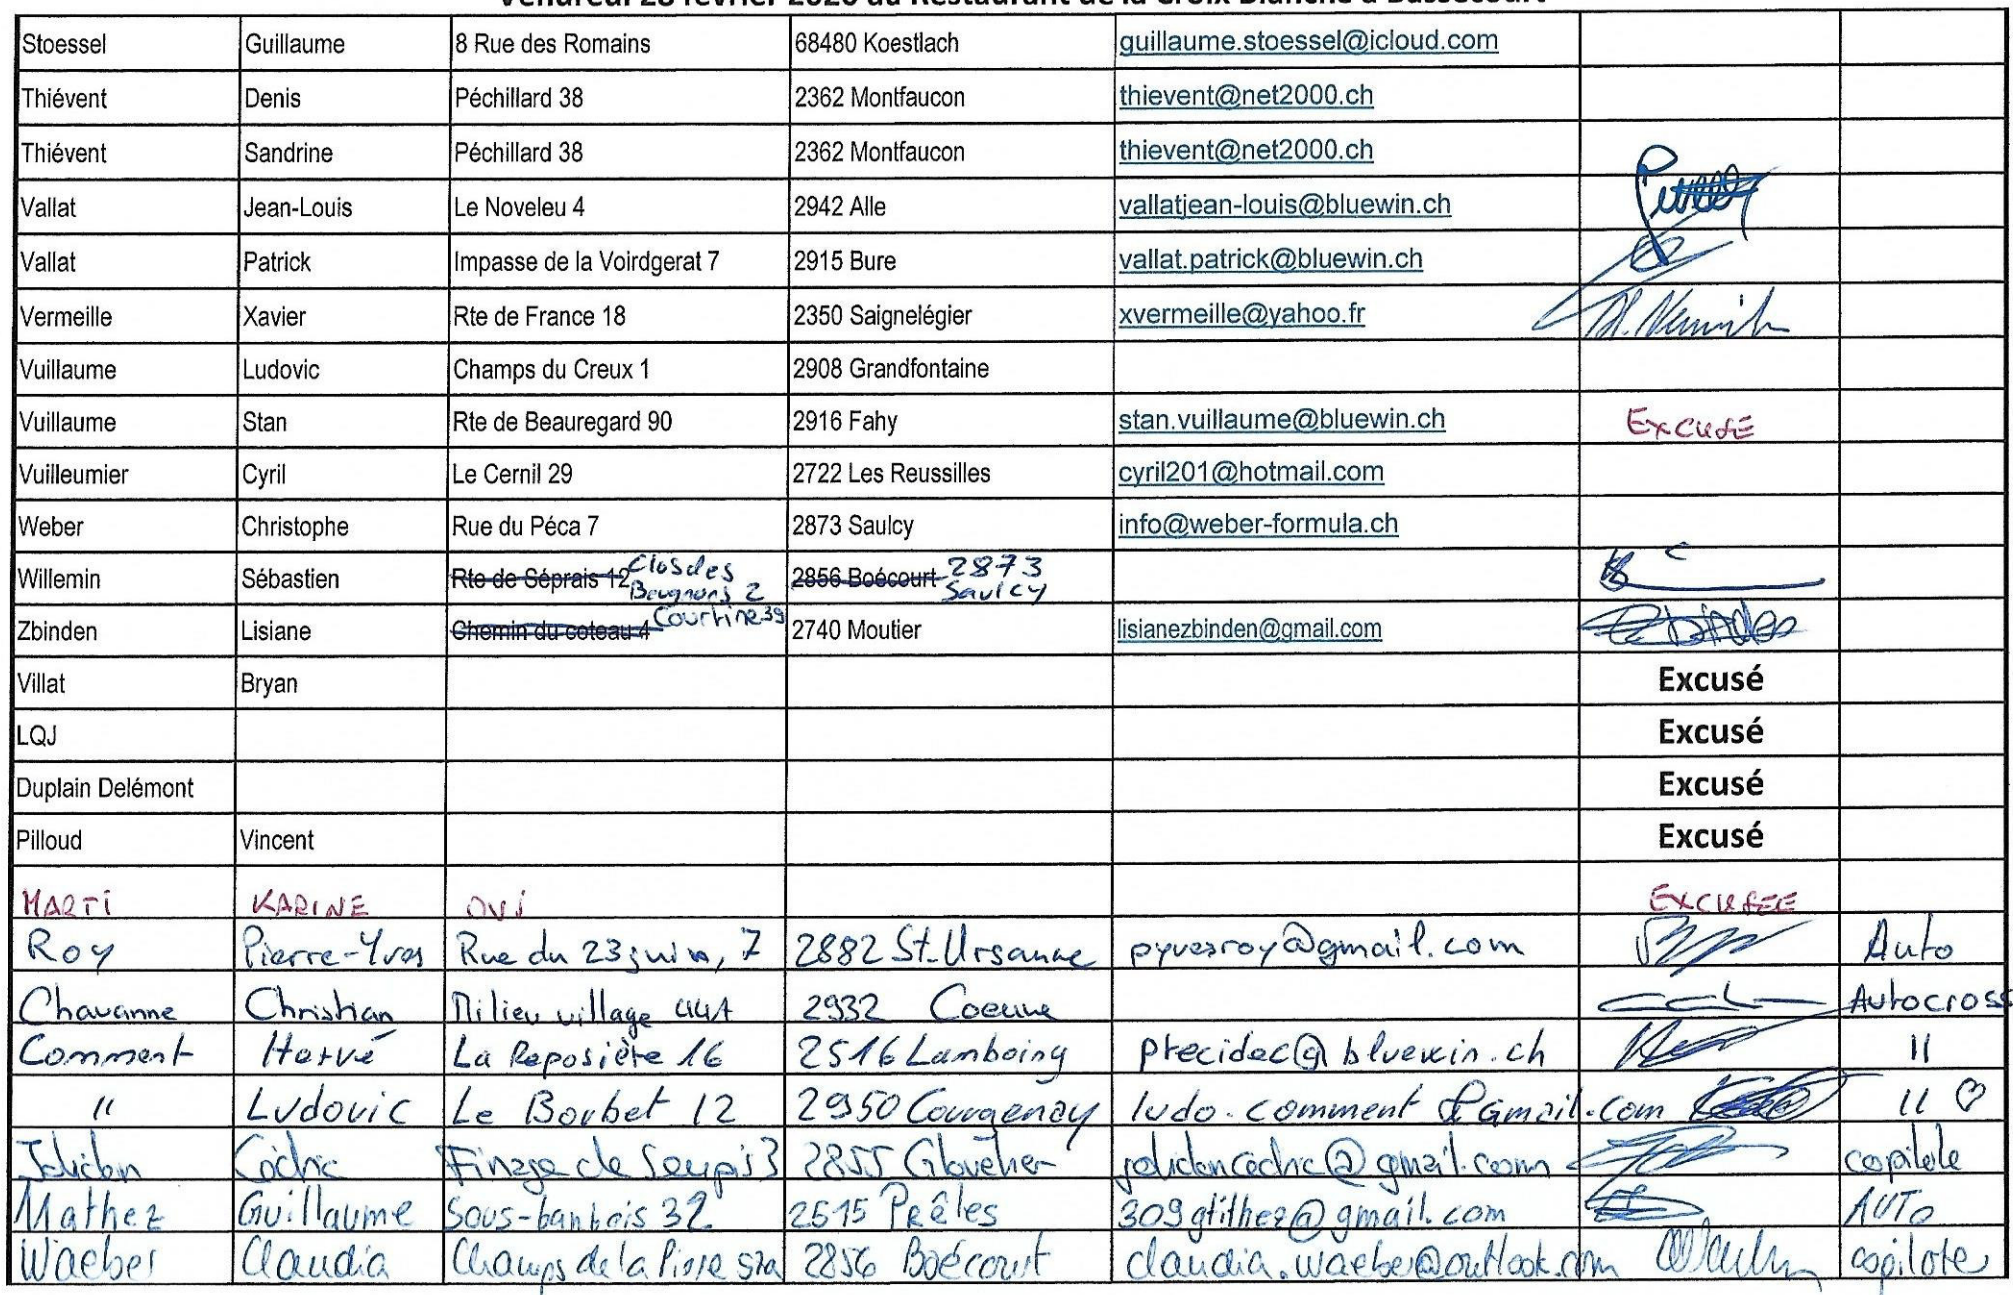 Vendredi 28 février 2020 au Restaurant de la Croix Blanche à Bassecourt
Stoessel Guillaume 8 Rue des Romains 68480 Koestlach guillaume.stoessel@icloud.com
Thiévent Denis Péchillard 38 2362 Montfaucon thievent@net2000.ch
Thiévent Sandrine Péchillard 38 2362 Montfaucon thievent@net2000.ch
Vallat Jean-Louis Le Noveleu 4 2942 Alle vallatjean-louis@bluewin.ch
Vallat Patrick Impasse de la Voirdgerat 7 2915 Bure vallat.patrick@bluewin.ch
Vermeille Xavier Rte de France 18 2350 Saignelégier xvermeille@yahoo.fr
Vuillaume Ludovic Champs du Creux 1 2908 Grandfontaine
Vuillaume Stan Rte de Beauregard 90 2916 Fahy stan.vuillaume@bluewin.ch EXCUSÉ
Vuilleumier Cyril Le Cernil 29 2722 Les Reussilles cyril201@hotmail.com
Weber Christophe Rue du Péca 7 2873 Saulcy info@weber-formula.ch
Willemin Sébastien Rte de Séprais 12 Clos des 2856 Boécourt 2873
2 Saulcy
Zbinden Lisiane Chemin du coteau 4 Courtine 39 2740 Moutier lisianezbinden@gmail.com Zbinden
Villat Bryan Excusé
LQJ Excusé
Duplain Delémont Excusé
Pilloud Vincent Excusé
MARTI KARINE OVJ EXCUSÉE
Roy Pierre-Yves Rue du 23 juin, 7 2882 St-Ursanne pyvesroy@gmail.com Auto
Chavanne Christian Milieu village 44A 2932 Coeuve Autocross
Comment Hervé La Reposière 16 2516 Lamboing precidec@bluewin.ch "
" Ludovic Le Borbet 12 2950 Courgenay ludo.comment@Gmail.com " ♡
Jolidon Cédric Finage de Soupis 3 2855 Glovelier jolidoncedric@gmail.com copilote
Mathez Guillaume Sous-banbois 32 2515 Prêles 309gtithez@gmail.com AUTO
Waeber Claudia Champs de la Pierre 57a 2856 Boécourt claudia.waeber@outlook.com copilote